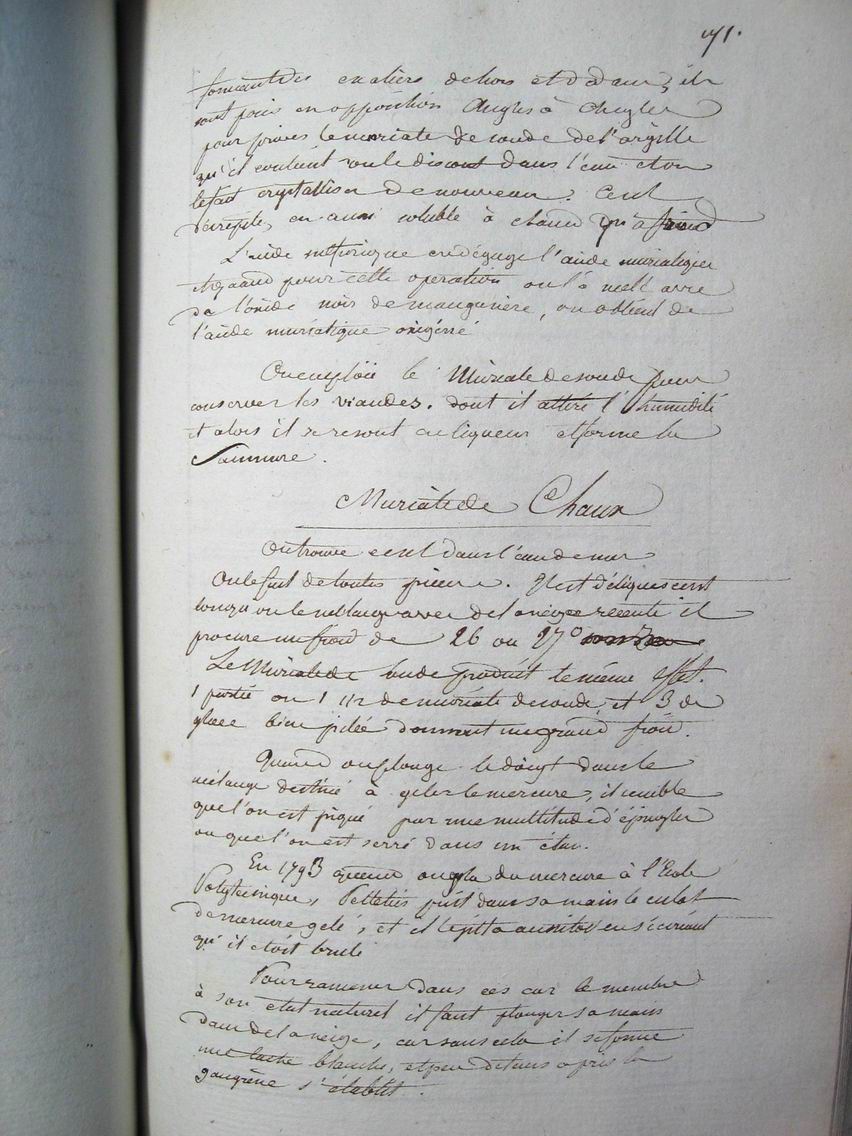 71.
formant des escaliers dehors et dedans, ils
sont posés en opposition Angles à Angles
pour priver le muriate de soude de l'argille
qu'il contient on le dissout dans l'eau et on
le fait crystalliser de nouveau. Ce sel
décrépite, en aussi soluble à chaud qu'à froid
L'acide nitrique en dégage l'acide muriatique
et quand pour cette operation on l'a melé avec
de l'oxide noir de manganèse, on obtient de
l'acide muriatique oxigéné
On emploie le Muriate de soude pour
conserver les viandes. dont il attire l'humidité
et alors il se resout en liqueur et forme la
Saumure.
Muriate de Chaux
On trouve ce sel dans l'eau de mer
On le fait de toutes pieces. Il est déliquescent
lorsqu'on le mélange avec de la neige recente il
procure un froid de 26 ou 27°
Le Muriate de soude produit le même effet.
1 partie ou 1 1/2 de muriate de soude, et 3 de
glace bien pilée donnent un grand froid.
Quand on plonge le doigt dans le
mélange destiné à geler le mercure, il semble
que l'on est piqué par une multitude d'épingles
ou que l'on est serré dans un étau.
En 1793 quand on gela du mercure à l'Ecole
Polytecnique, Pelletier prit dans sa main le culot
de mercure gelé, et il le jetta aussitot en s'écriant
qu'il etoit brulé
Pour ramener dans ces cas le membre
à son état naturel il faut plonger sa main
dans de la neige, car sans cela il se forme
une tache blanche, et peu de tems après la
gangrène s'établit.